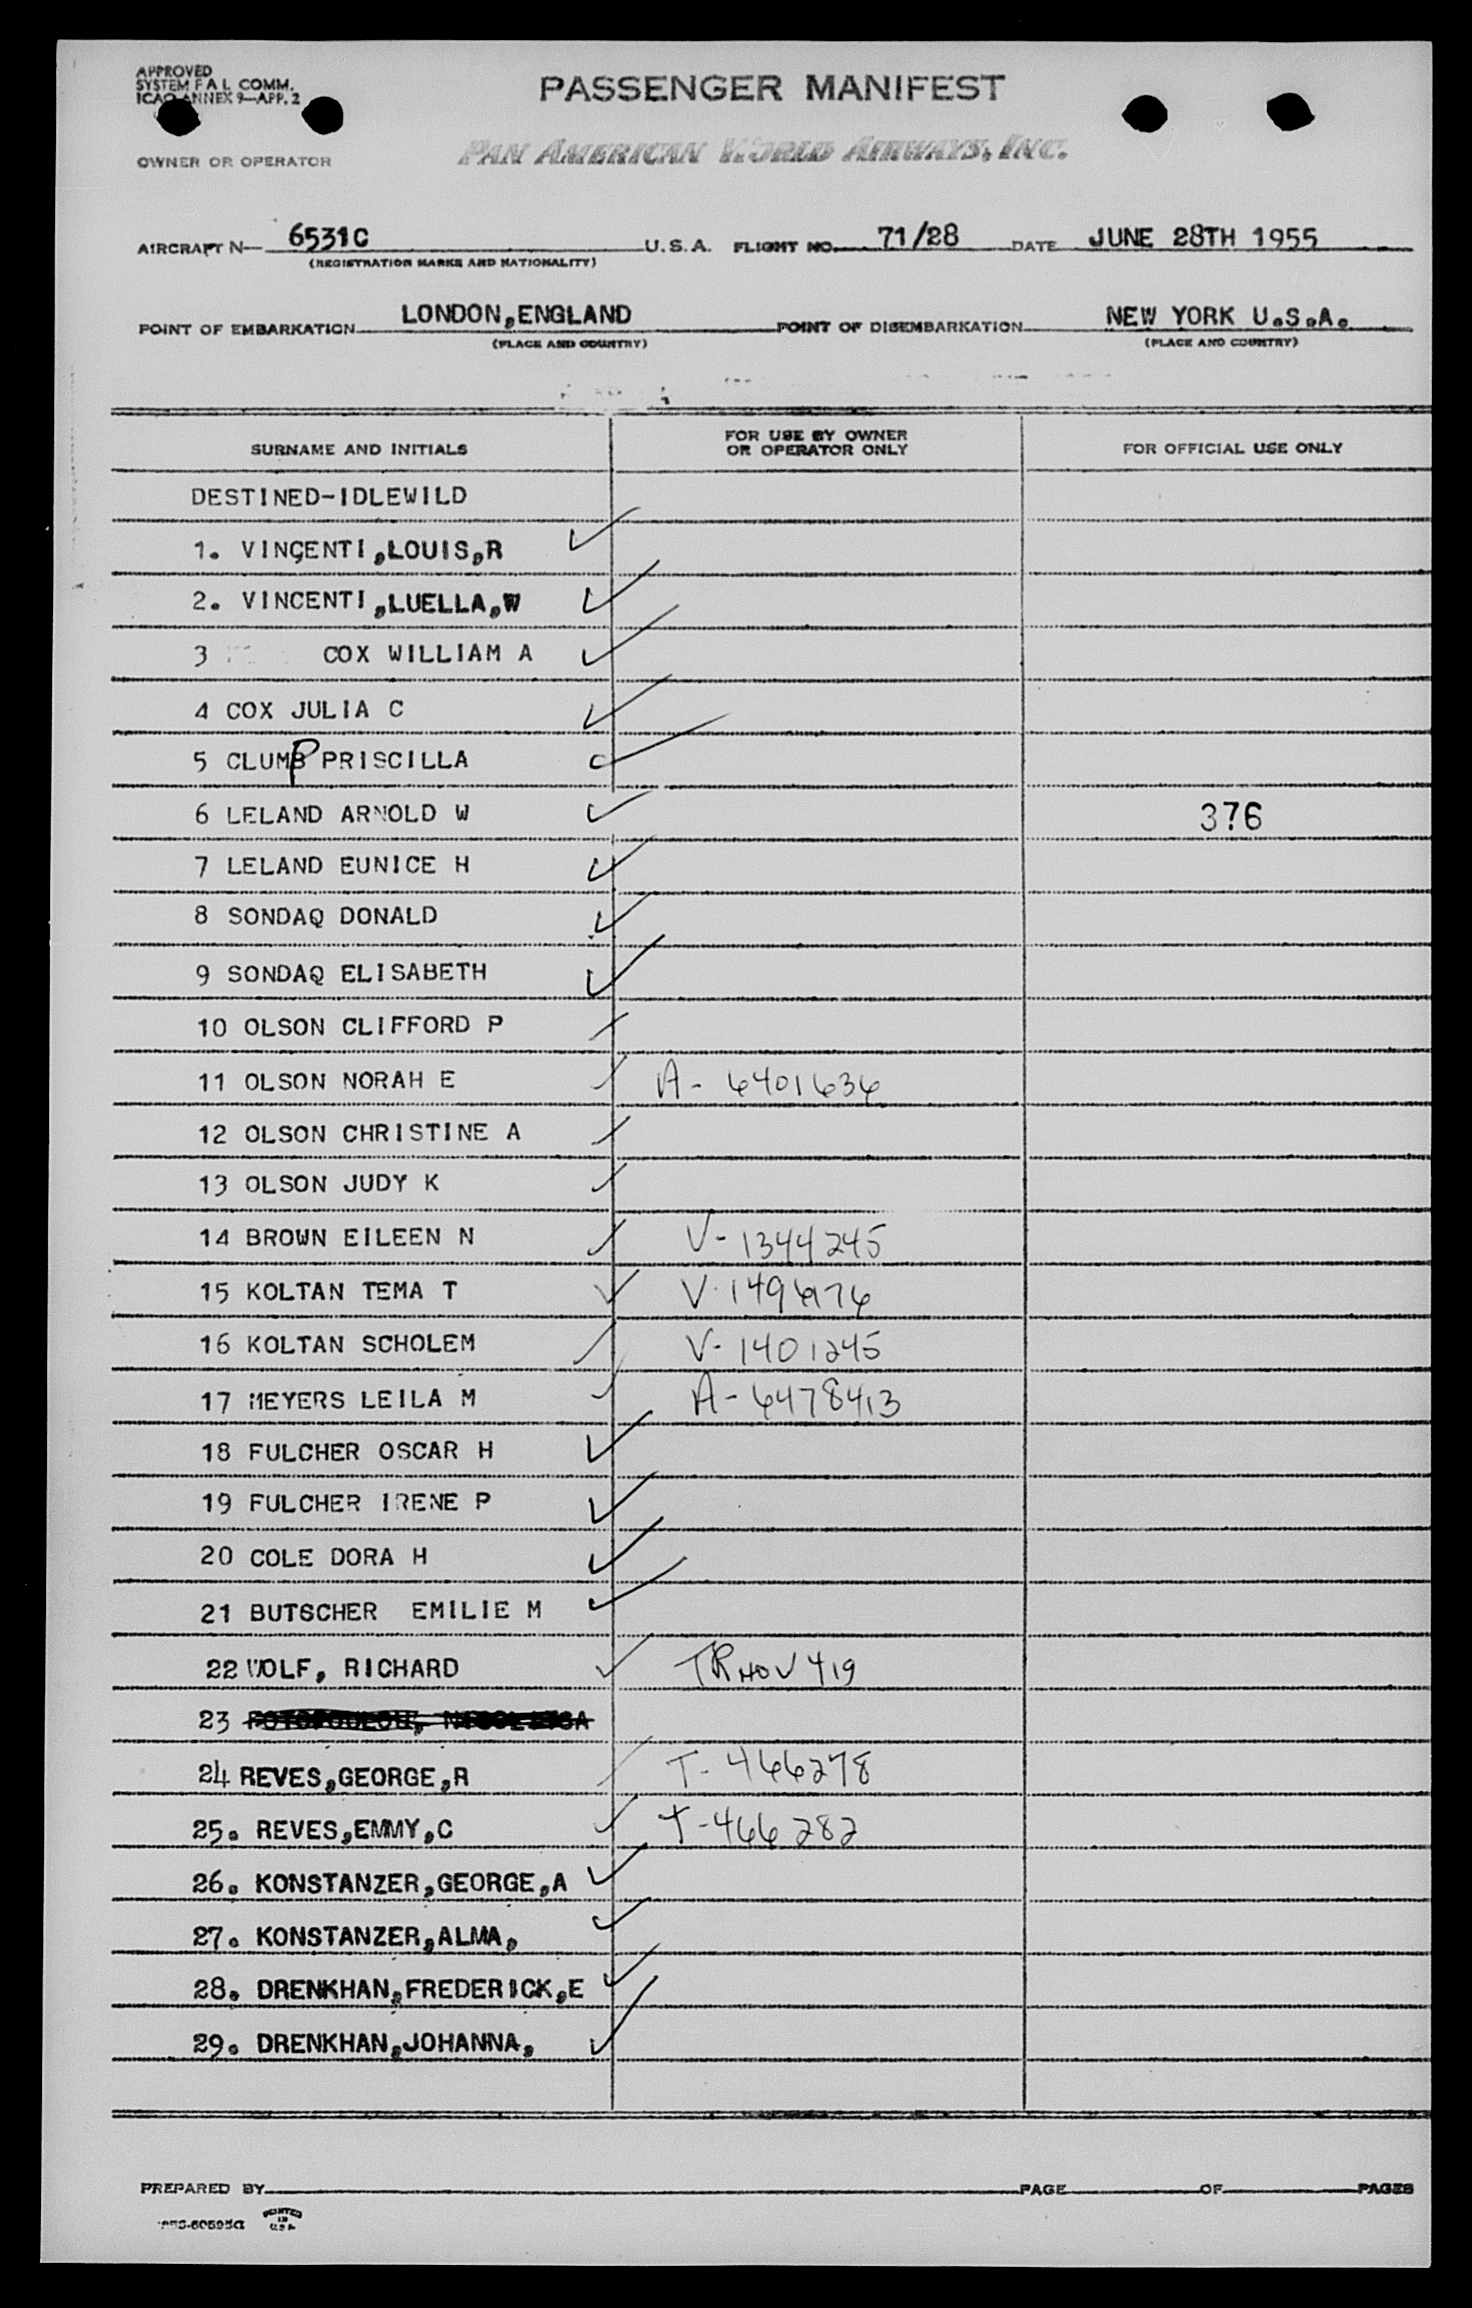 APPROVED
SYSTEM F A L COMM.
ICAO ANNEX 9—APP. 2
PASSENGER MANIFEST
OWNER OR OPERATOR
PAN AMERICAN WORLD AIRWAYS, INC.
AIRCRAFT N— 6531C U.S.A. FLIGHT NO. 71/28 DATE JUNE 28TH 1955
(REGISTRATION MARKS AND NATIONALITY)
POINT OF EMBARKATION LONDON,ENGLAND POINT OF DISEMBARKATION NEW YORK U.S.A.
(PLACE AND COUNTRY) (PLACE AND COUNTRY)
SURNAME AND INITIALS FOR USE BY OWNER OR OPERATOR ONLY FOR OFFICIAL USE ONLY
DESTINED-IDLEWILD
1. VINCENTI,LOUIS,R
2. VINCENTI,LUELLA,W
3 COX WILLIAM A
4 COX JULIA C
5 CLUMP PRISCILLA
6 LELAND ARNOLD W 376
7 LELAND EUNICE H
8 SONDAQ DONALD
9 SONDAQ ELISABETH
10 OLSON CLIFFORD P
11 OLSON NORAH E A- 6401636
12 OLSON CHRISTINE A
13 OLSON JUDY K
14 BROWN EILEEN N V- 1344245
15 KOLTAN TEMA T V-1496176
16 KOLTAN SCHOLEM V- 1401245
17 MEYERS LEILA M A- 6478413
18 FULCHER OSCAR H
19 FULCHER IRENE P
20 COLE DORA H
21 BUTSCHER EMILIE M
22 WOLF, RICHARD TR HOV 419
23
24 REVES,GEORGE,R T- 466278
25. REVES,EMMY,C T-466282
26. KONSTANZER,GEORGE,A
27. KONSTANZER,ALMA,
28. DRENKHAN,FREDERICK,E
29. DRENKHAN,JOHANNA,
PREPARED BY PAGE OF PAGES
PRINTED
IN
U.S.A.